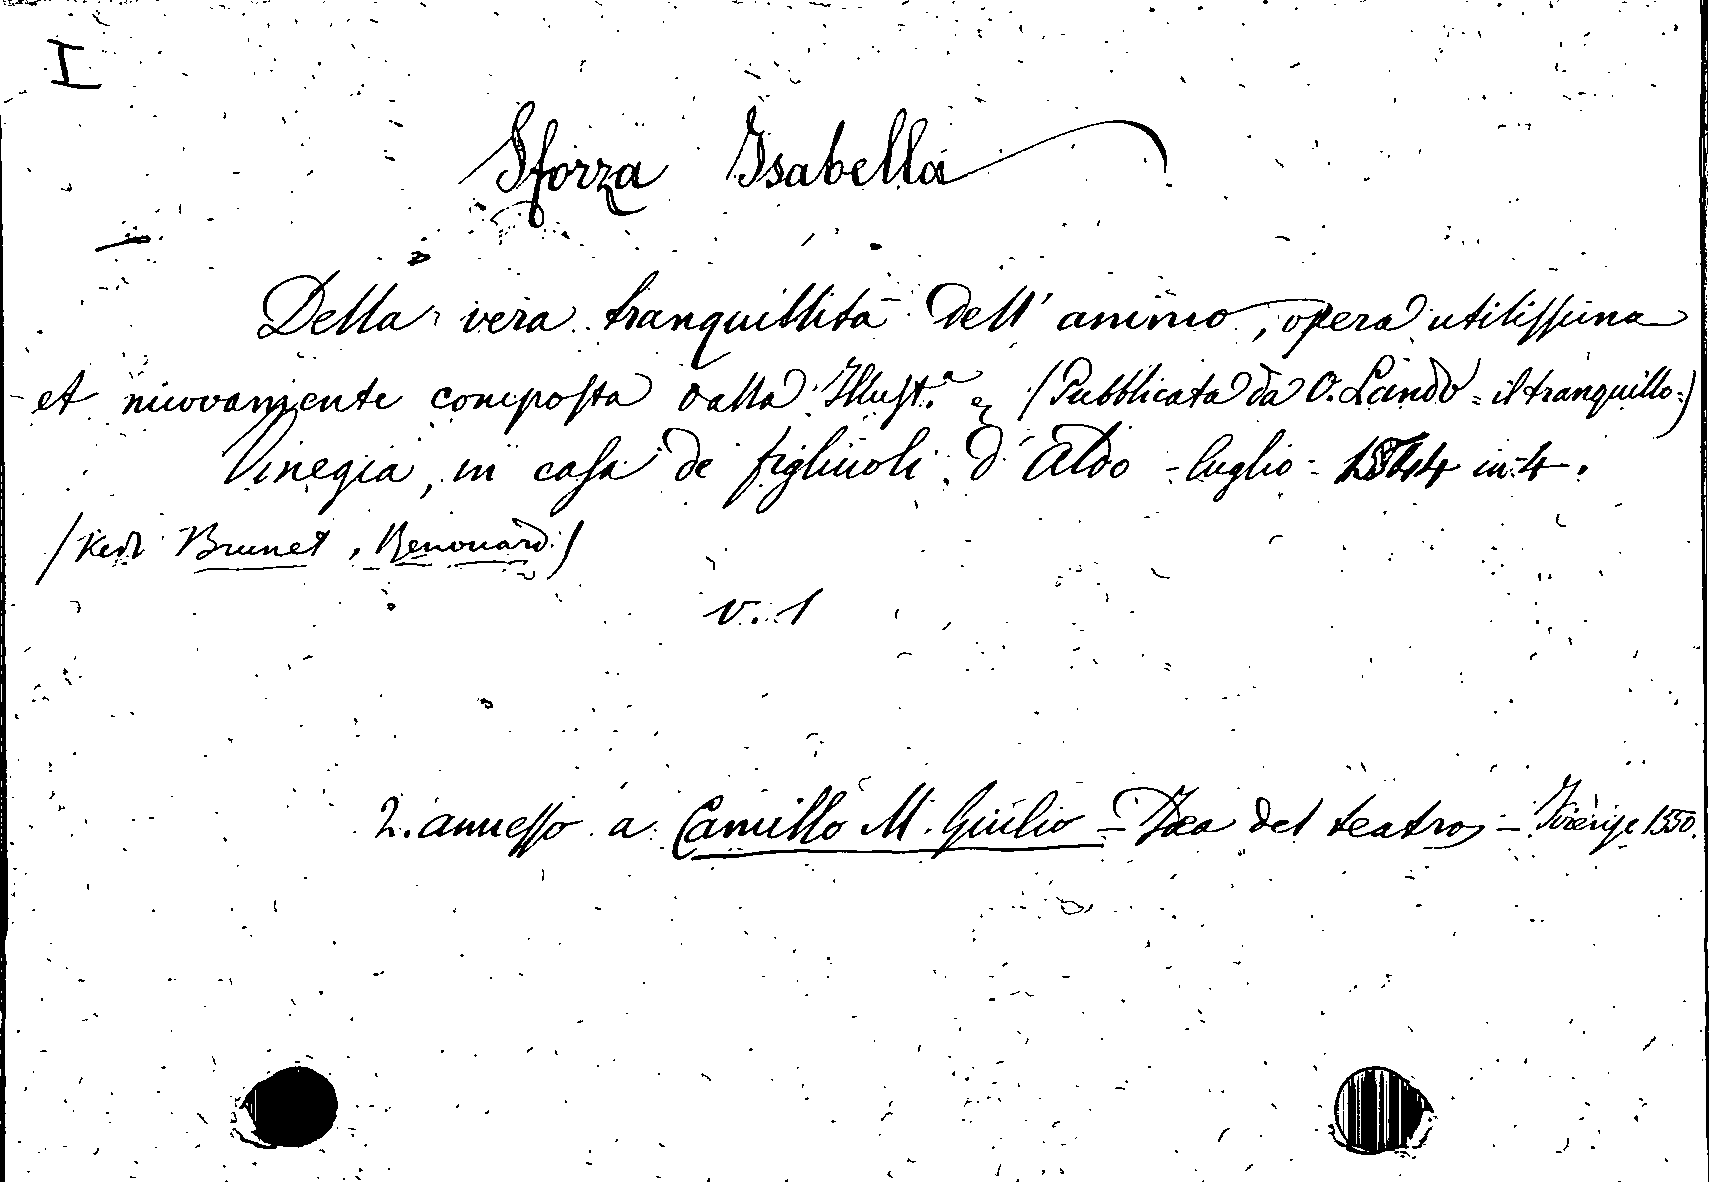 I
Sforza Isabella
Della vera tranquillità dell' animo, opera utilissima
et nuovamente composta dalla Illust.ª & (Pubblicata da O. Lando = il tranquillo=)
Vinegia, in casa de figliuoli d'Aldo - luglio - 1544 in-4.
(Vedi Brunet, Renouard)
v. 1
2. annesso a Camillo M. Giulio - Idea del teatro, - Firenze 1550.